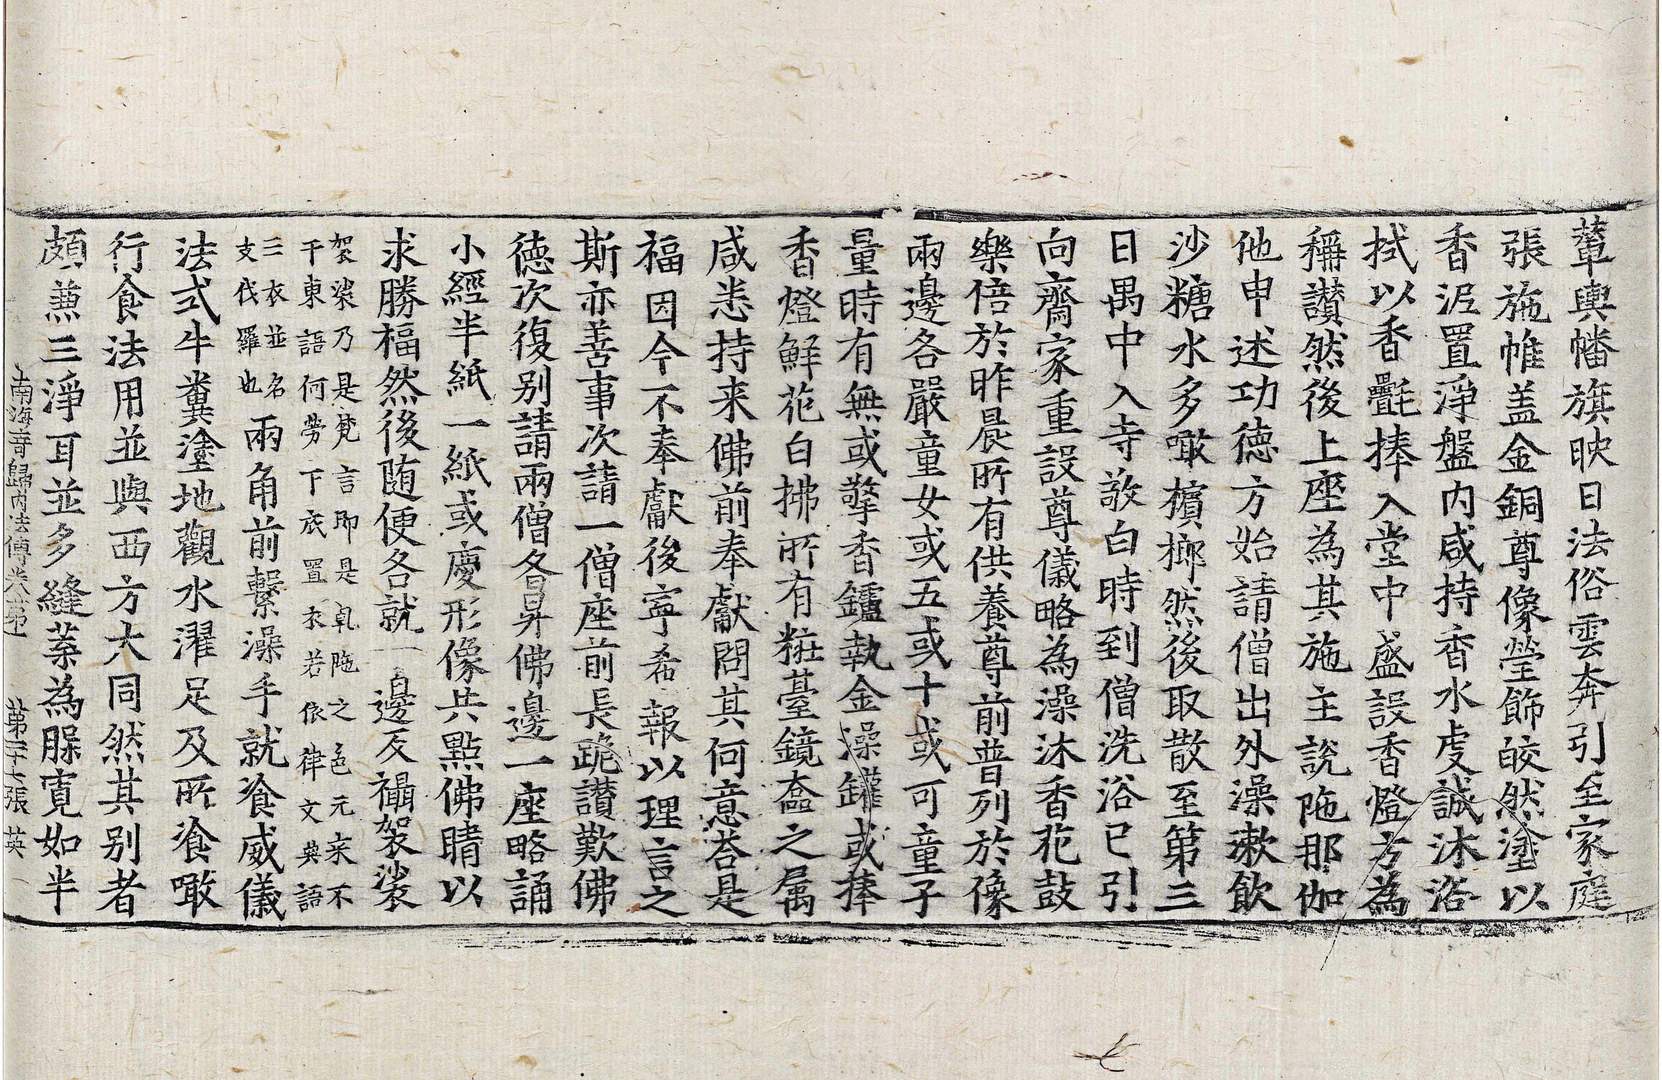 輦輿幡旗映日法俗雲奔引至家庭
張施帷盖金銅尊像瑩飾皎然塗以
香泥置淨盤內咸持香水虔誠沐浴
拭以香㲲捧入堂中盛設香燈方為
稱讚然後上座為其施主說陁那伽
他申述功德方始請僧出外澡漱飲
沙糖水多噉檳榔然後取散至第三
日禺中入寺敬白時到僧洗浴已引
向齋家重設尊儀略為澡沐香花鼓
樂倍於昨晨所有供養尊前普列於像
兩邊各嚴童女或五或十或可童子
量時有無或擎香鑪執金澡罐或捧
香燈鮮花白拂所有粧臺鏡奩之属
咸悉持来佛前奉獻問其何意荅是
福因今不奉獻後寧希報以理言之
斯亦善事次請一僧座前長跪讚歎佛
德次復別請兩僧各昇佛邊一座略誦
小經半紙一紙或慶形像共點佛睛以
求勝福然後随便各就一邊反襵袈裟
袈裟乃是梵言即是乹陁之色元来不
干東語何勞下底置衣若依律文典語
三衣並名
支伐羅也
兩角前繫澡手就飡威儀
法式牛糞塗地觀水濯足及所飡噉
行食法用並與西方大同然其別者
頗兼三淨耳並多縫葉為臊寬如半
南海寄歸內法傳卷第一　第二十七張　英